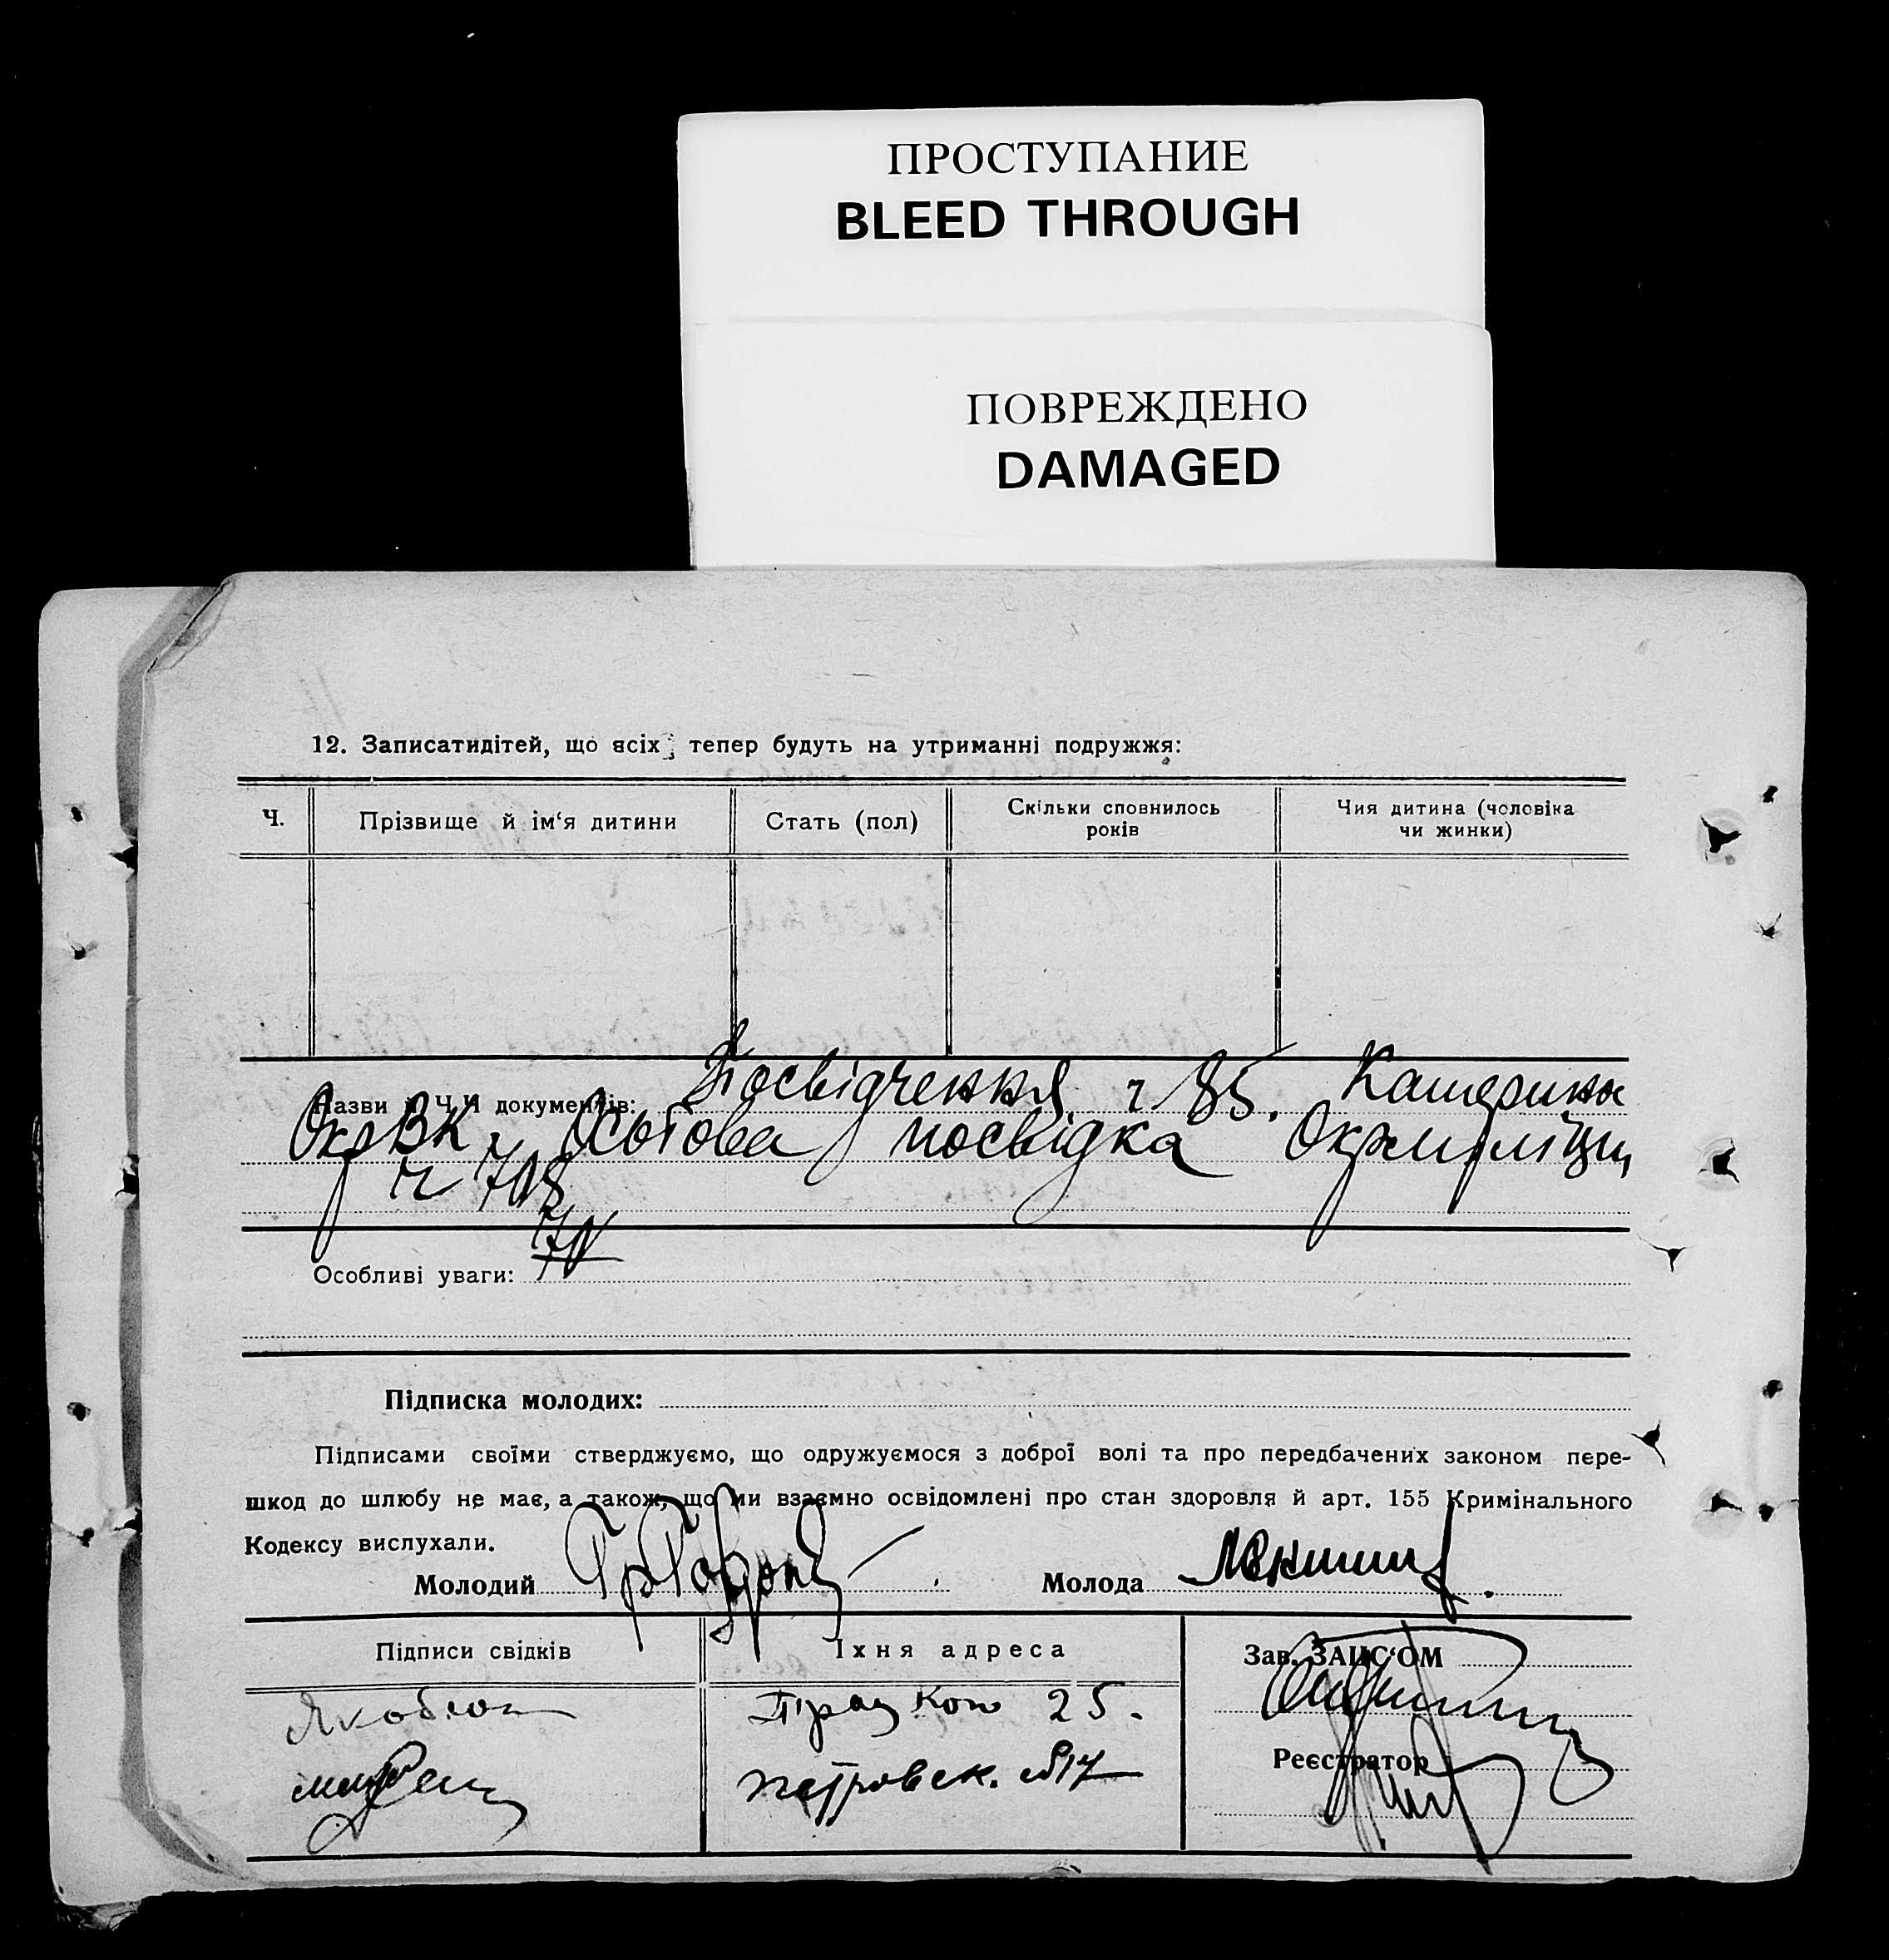 ПРОСТУПАНИЕ
BLEED THROUGH
ПОВРЕЖДЕНО
DAMAGED
12. Записатидітей, що всіх тепер будуть на утриманні подружжя:
Ч.
Прізвище й ім‘я дитини
Стать (пол)
Скільки сповнилось
років
Чия дитина (чоловіка
чи жинки)
Назви й Ч.Ч документів: Посвідчення ч 85. Катерин
ОкрВК, Особова посвідка Окрміліції
ч 718
Особливі уваги:
Підписка молодих:
Підписами своїми стверджуємо, що одружуємося з доброї волі та про передбачених законом пере-
шкод до шлюбу не має, а також, що ми взаємно освідомлені про стан здоровля й арт. 155 Кримінального
Кодексу вислухали.
Молодий
Молода
Підписи свідків
Їхня адреса
Зав. ЗАЦС‘ОМ
25.
Петровск. №17
Реєстратор